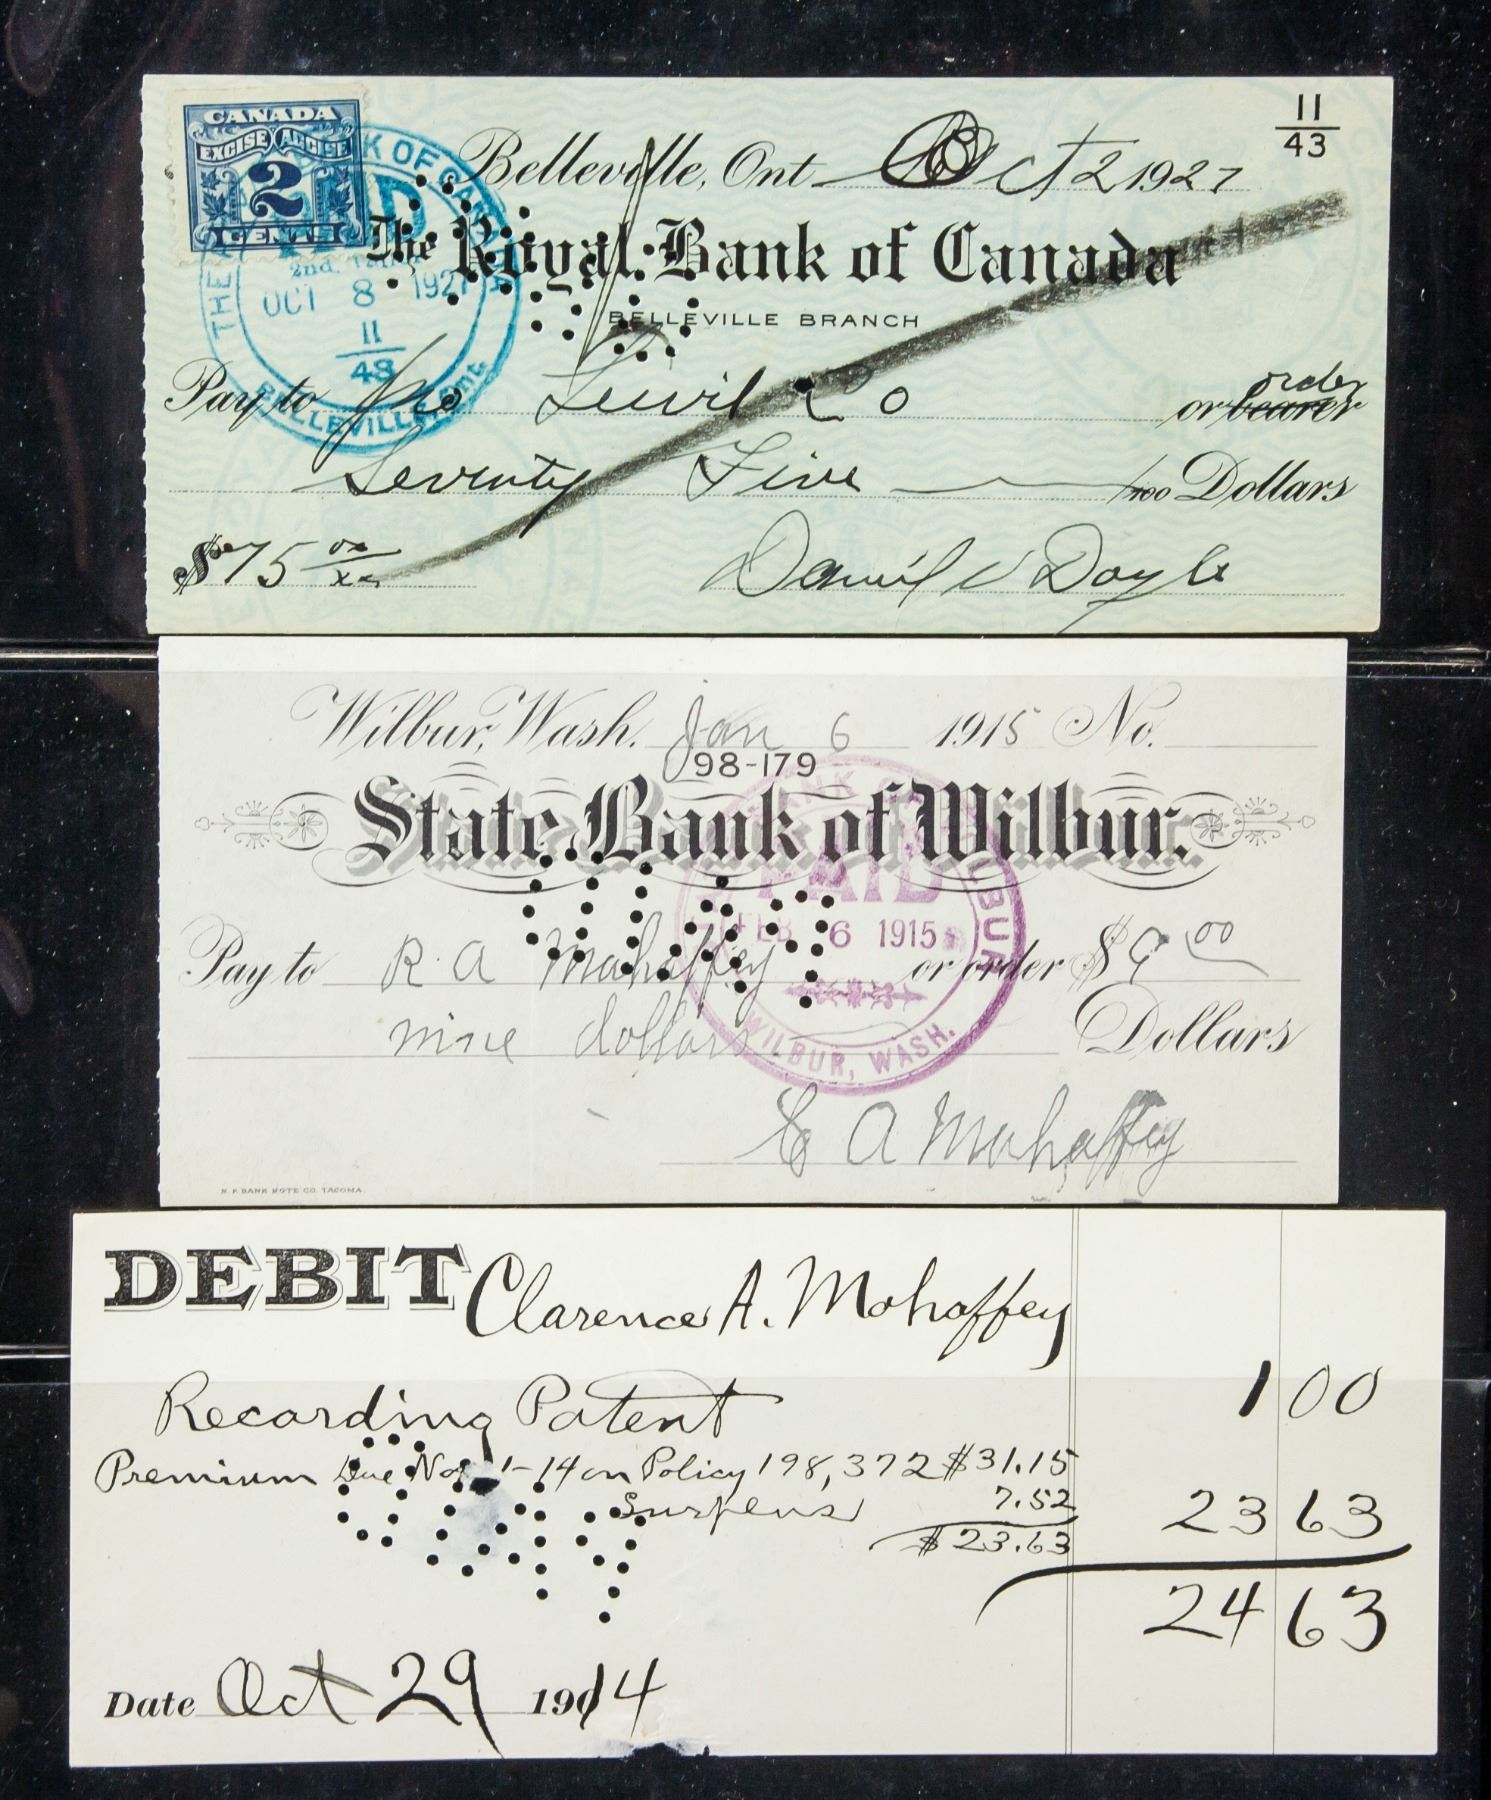 CANADA
EXCISE ACCISE
2
CENTS
11
43
Belleville, Ont. Oct 2 1927
The Royal Bank of Canada
BELLEVILLE BRANCH
2nd. Teller
OCT 8 1927
11
43
BELLEVILLE, Ont.
Pay to Co order
or bearer
Seventy Five /100 Dollars
$75 00/xx
Daniel V Doyle
Wilbur, Wash. Jan 6 1915 No.
98-179
State Bank of Wilbur.
PAID
FEB 6 1915
WILBUR, WASH.
Pay to R A Mahaffey or order $9 00
nine dollars Dollars
C A Mahaffey
N. P. BANK NOTE CO. TACOMA.
DEBIT Clarence A. Mohaffey
Recording Patent 1 00
Premium Due Nov 1-14 on Policy 198,372 $31.15
Suspens 7.52 23 63
$23.63
24 63
Date Oct 29 1914